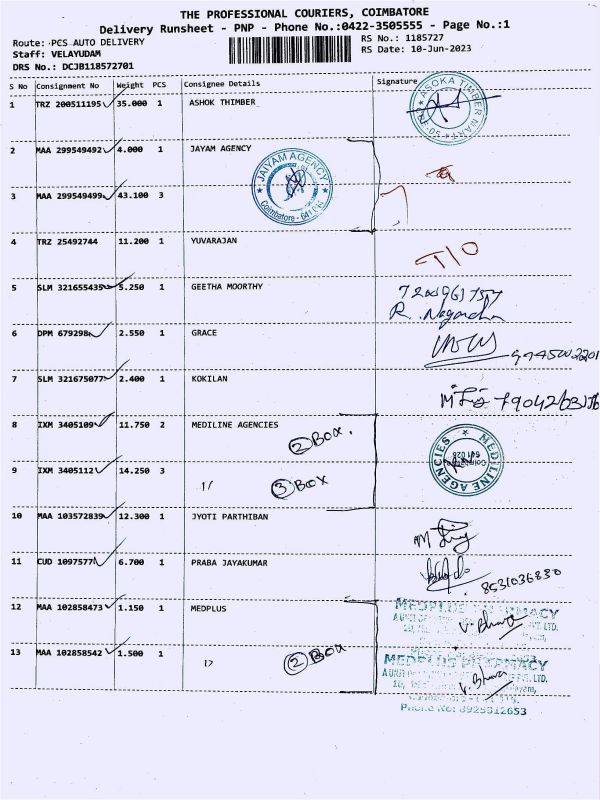 THE PROFESSIONAL COURIERS, COIMBATORE
Delivery Runsheet - PNP - Phone No.:0422-3505555 - Page No.:1
Route: PCS AUTO DELIVERY
RS No.: 1185727
Staff: VELAYUDAM
RS Date: 10-Jun-2023
DRS No.: DCJB118572701
S No Consignment No Weight PCS Consignee Details Signature
1 TRZ 200511195 35.000 1 ASHOK THIMBER
ASOKA TIMBER MART
2 MAA 299549492 4.000 1 JAYAM AGENCY
JAIYAM AGENCY
Coimbatore - 641
3 MAA 299549499 43.100 3
4 TRZ 25492744 11.200 1 YUVARAJAN
5 SLM 321655435 5.250 1 GEETHA MOORTHY
6 DPM 679298 2.550 1 GRACE
7 SLM 321675077 2.400 1 KOKILAN
8 IXM 3405109 11.750 2 MEDILINE AGENCIES
2 BOX.
MEDILINE AGENCIES
641 028
9 IXM 3405112 14.250 3 " 3 BOX
10 MAA 103572839 12.300 1 JYOTI PARTHIBAN
11 CUD 1097577 6.700 1 PRABA JAYAKUMAR
8531036830
12 MAA 102858473 1.150 1 MEDPLUS
MEDPLUS PHARMACY
V. Bhava
13 MAA 102858542 1.500 1 " 2 BOX
MEDPLUS PHARMACY
V. Bhava
Phone No: 8925512653